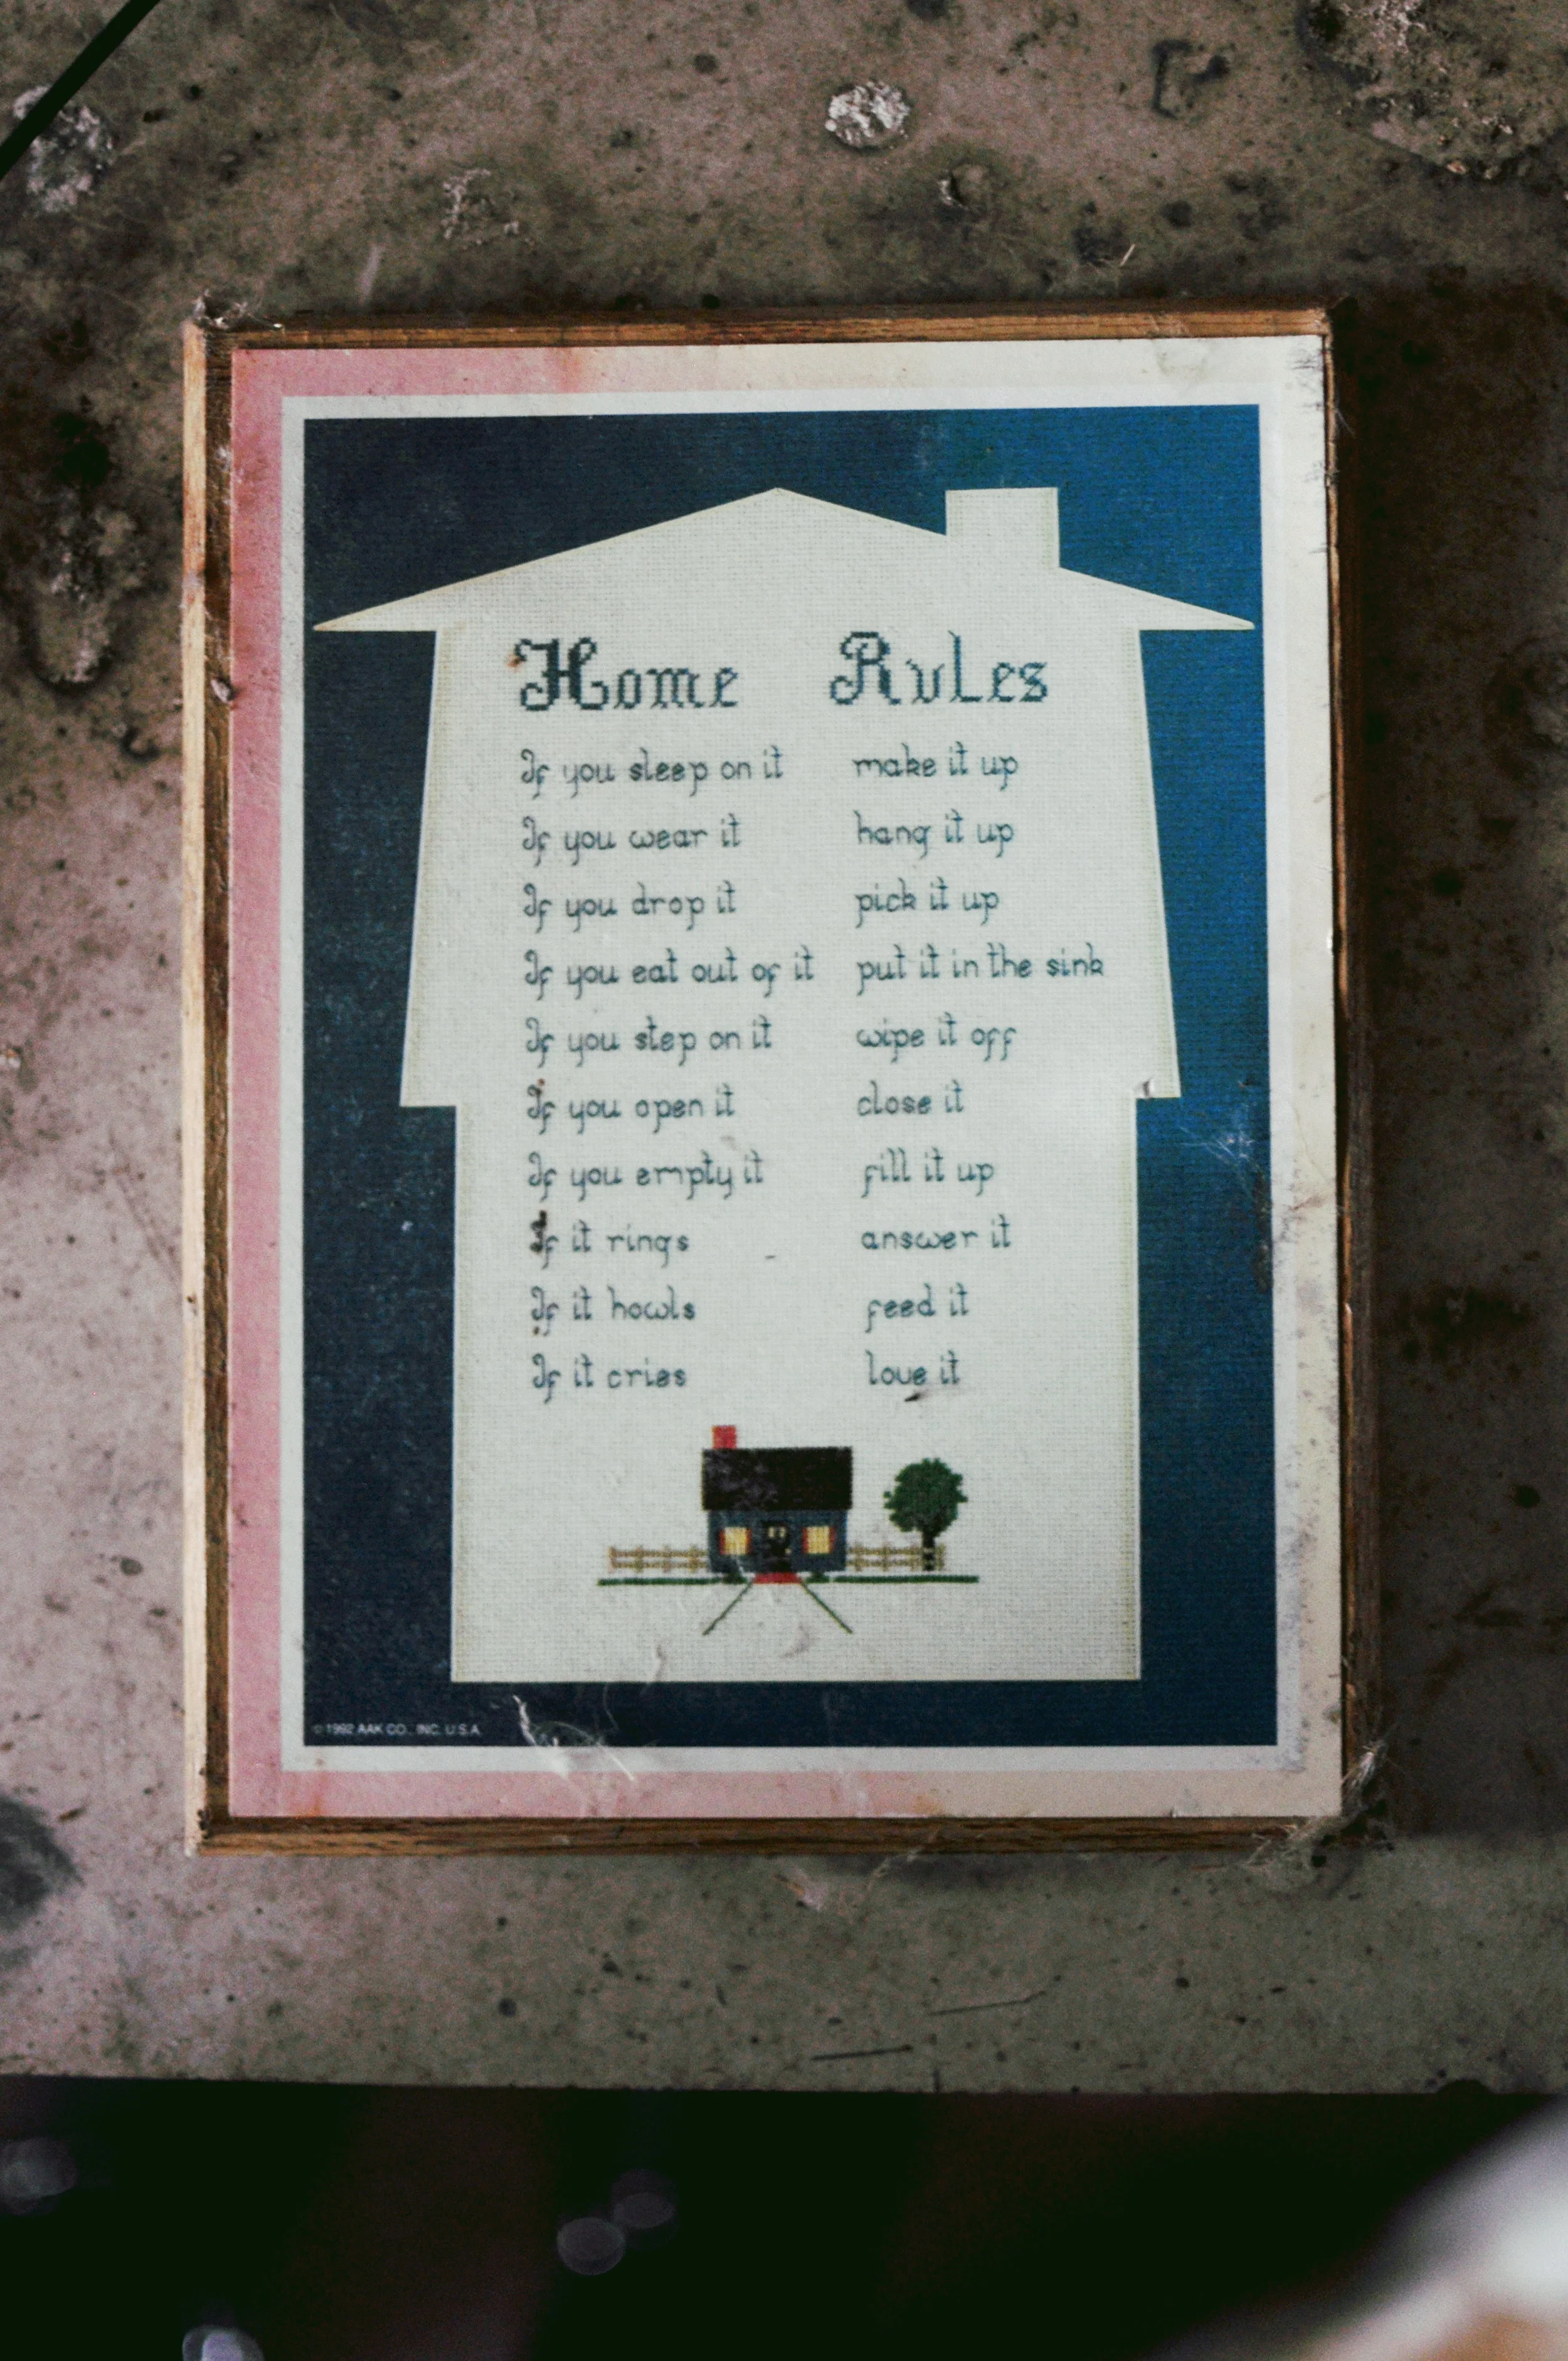 Home Rules
If you sleep on it make it up
If you wear it hang it up
If you drop it pick it up
If you eat out of it put it in the sink
If you step on it wipe it off
If you open it close it
If you empty it fill it up
If it rings answer it
If it howls feed it
If it cries love it
© 1992 AAK CO., INC. U.S.A.